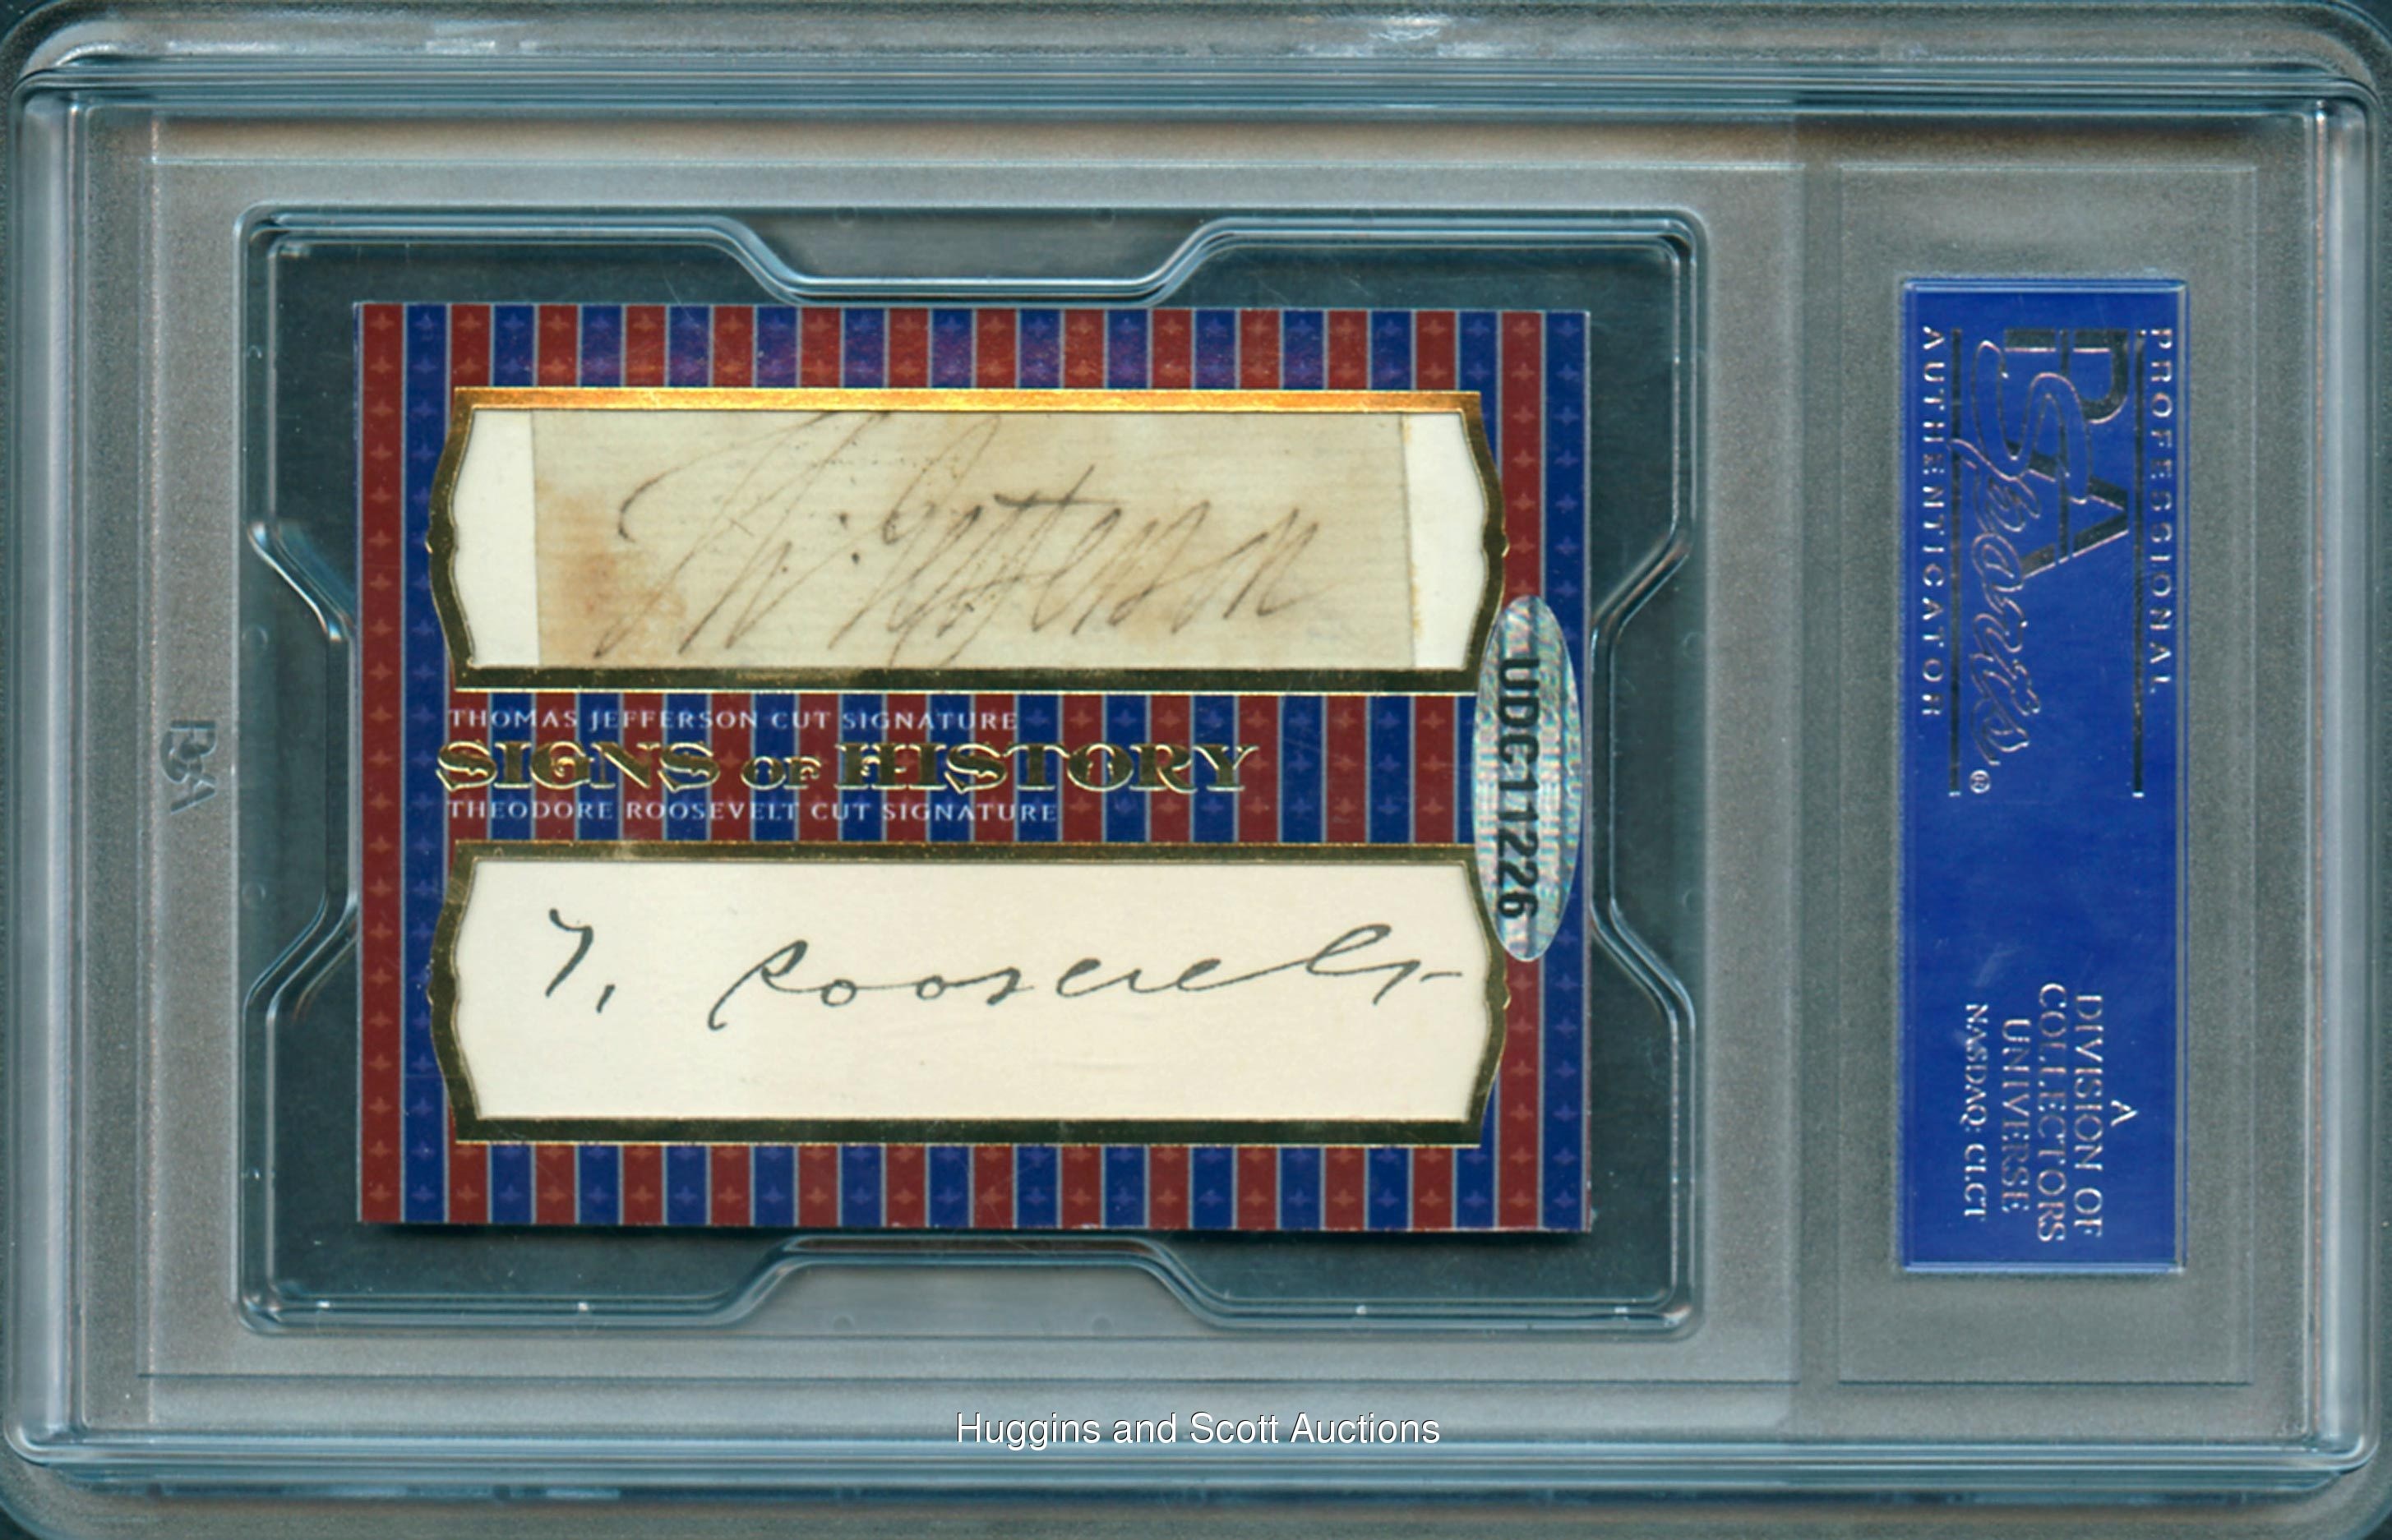 Th. Jefferson
THOMAS JEFFERSON CUT SIGNATURE
SIGNS OF HISTORY
THEODORE ROOSEVELT CUT SIGNATURE
T. Roosevelt
UDC11226
PSA
PROFESSIONAL
PSA
Sports®
AUTHENTICATOR
A
DIVISION OF
COLLECTORS
UNIVERSE
NASDAQ: CLCT
Huggins and Scott Auctions